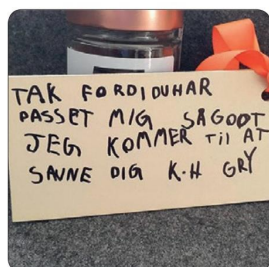 TAK FORDIDUHAR
PASSET MIG SÅGODT
JEG KOMMER TIL AT
SAVNE DIG K.H GRY